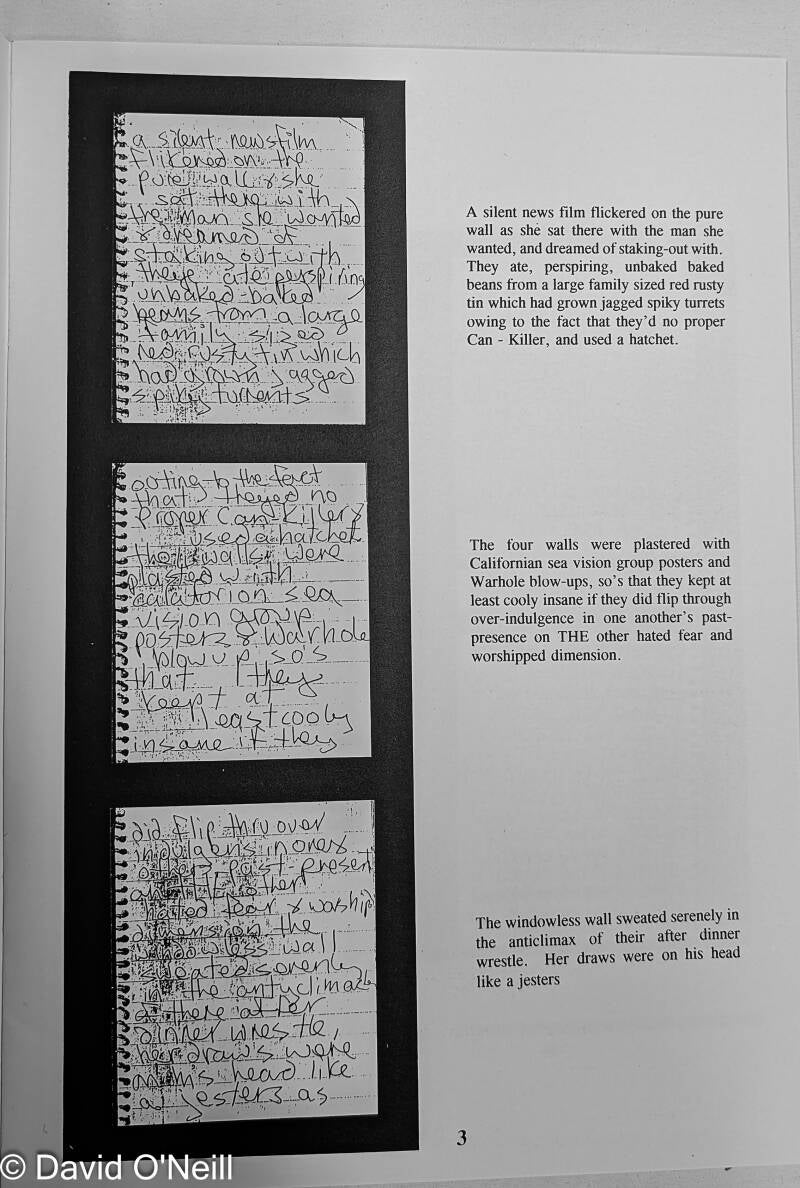 a silent newsfilm
flikered on the
pure wall & she
sat there with
the man she wanted
& dreamed of
staking out with
they ate perspiring
unbaked baked
beans from a large
family sized
red rusty tin which
had grown jagged
spiky turrents
A silent news film flickered on the pure
wall as she sat there with the man she
wanted, and dreamed of staking-out with.
They ate, perspiring, unbaked baked
beans from a large family sized red rusty
tin which had grown jagged spiky turrets
owing to the fact that they'd no proper
Can - Killer, and used a hatchet.
to the fact
that theyed no
proper can-killer &
used a hatchet
the walls were
plasted with
sea
vision group
posters & warhole
blow up so's
that they
keept at
least cooly
insane if they
The four walls were plastered with
Californian sea vision group posters and
Warhole blow-ups, so's that they kept at
least cooly insane if they did flip through
over-indulgence in one another's past-
presence on THE other hated fear and
worshipped dimension.
did flip thru over
in ones
past-present
other
hated fear & waship
on the
wall
sweated serenly
in the
of there
dinner wrestle,
her draw's were
on his head like
a jesters as
The windowless wall sweated serenely in
the anticlimax of their after dinner
wrestle. Her draws were on his head
like a jesters
3
© David O'Neill